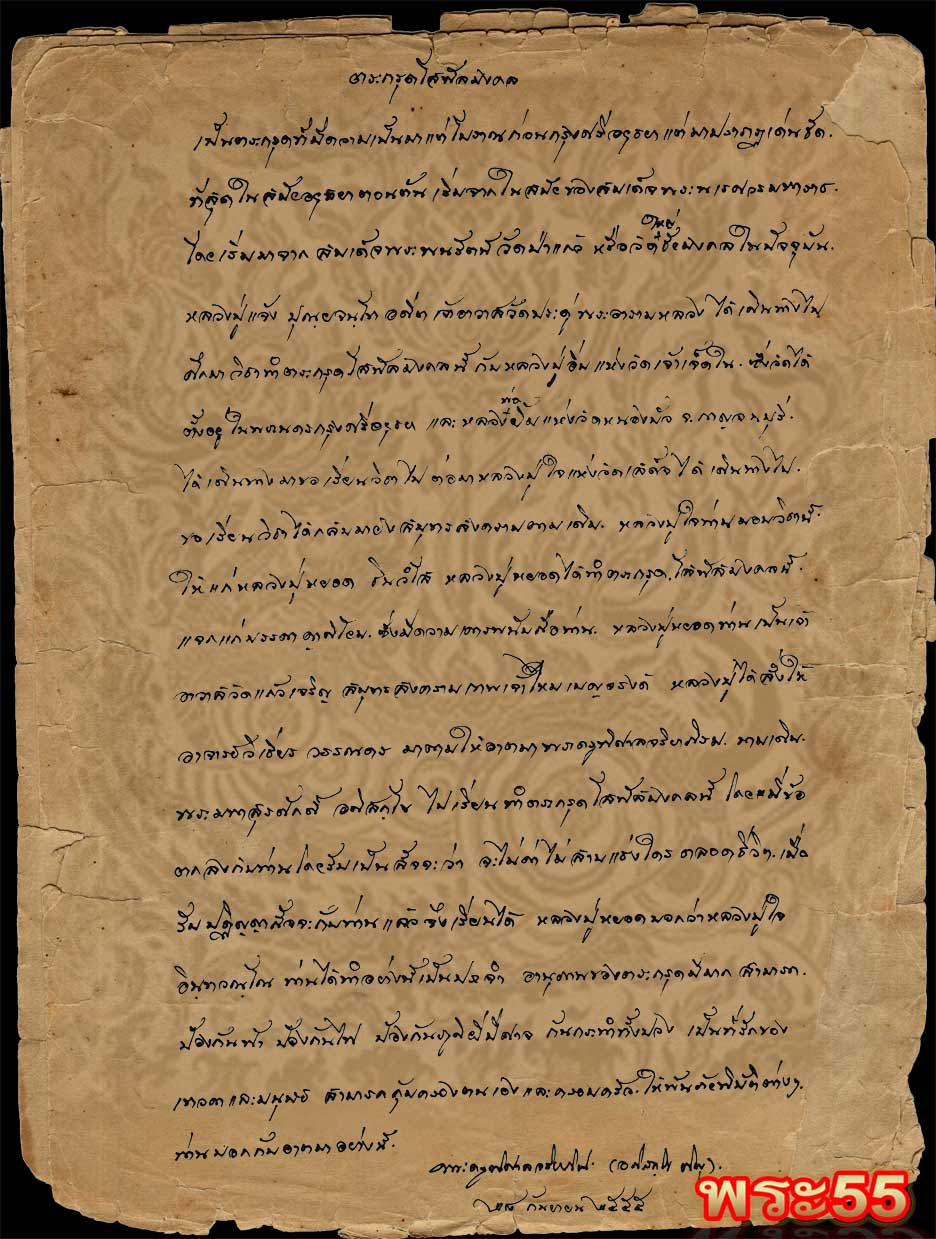 ตระกรุดโสฬสมงคล
เป็นตระกรุดที่มีความเป็นมาแต่โบราณก่อนกรุงศรีอยุธยา แต่มาปรากฏเด่นชัด.
ที่สุดในสมัยอยุธยาตอนต้น เริ่มจากในสมัยของสมเด็จพระนเรศวรมหาราช.
โดยเริ่มมาจาก สมเด็จพระพนรัตน์ วัดป่าแก้ว หรือวัดใหญ่ชัยมงคลในปัจจุบัน.
หลวงปู่แจ้ง ปุณฺยจนฺโท อดีตเจ้าอาวาสวัดประดู่พระอารามหลวง ได้เดินทางไป
ศึกษาวิชาทำตระกรุดโสฬสมงคลนี้ กับหลวงปู่อิ่มแห่งวัดเจ้าเจ็ดใน. ซึ่งวัดได้
ตั้งอยู่ในพระนครกรุงศรีอยุธยา และหลวงพ่อยิ้มแห่งวัดหนองบัว จ.กาญจนบุรี.
ได้เดินทางมาขอเรียนวิชาไป ต่อมาหลวงปู่ใจแห่งวัดเสด็จ ได้เดินทางไป.
ขอเรียนวิชาได้กลับมายังสมุทรสงครามตามเดิม. หลวงปู่ใจท่านมอบวิชานี้.
ให้แก่หลวงปู่หยอด ชินวํโส หลวงปู่หยอดได้ทำตระกรุดโสฬสมงคลนี้.
แจกแก่บรรดาญาติโยม. ซึ่งมีความเคารพนับถือท่าน. หลวงปู่หยอดท่านเป็นเจ้า
อาวาสวัดแก้วเจริญ สมุทรสงคราม เทพเจ้าไหมเบญจรงค์ หลวงปู่ได้สั่งให้
อาจารย์วิเชียร วรรณดาร มาตามให้อาตมาพระครูพิศาลจริยาภิรม. นามเดิม.
พระมหาสุรศักดิ์ ไปเรียนทำตระกรุดโสฬสมงคลนี้ โดยมีข้อ
ตกลงกับท่านโดยรับเป็นสัจจะว่า จะไม่ด่าไม่สาปแช่งใครตลอดชีวิต. เมื่อ
รับปฏิญญาสัจจะกับท่านแล้วจึงเรียนได้ หลวงปู่หยอดบอกว่าหลวงปู่ใจ
ท่านได้ทำอย่างนี้เป็นประจำ อานุภาพของตระกรุดมีมาก สามารถ.
ป้องกันฟ้า ป้องกันไฟ ป้องกันภูตผีปีศาจ กันกระทำทั้งปวง เป็นที่รักของ
เทวดาและมนุษย์ สามารถคุ้มครองตนเองและครอบครัว. ให้พ้นภัยพิบัติต่างๆ.
ท่านบอกกับอาตมาอย่างนี้.
พระครูพิศาลจริยาภิรม.
กันยายน ๒๕๕๕
พระ55